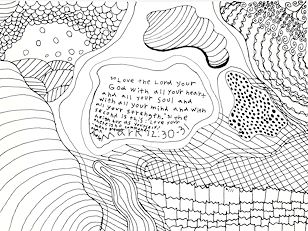 "Love the Lord your
God with all your heart
and all your soul and
with all your mind and with
all your strength." The
second is this: 'Love your
Mark 12:30-3